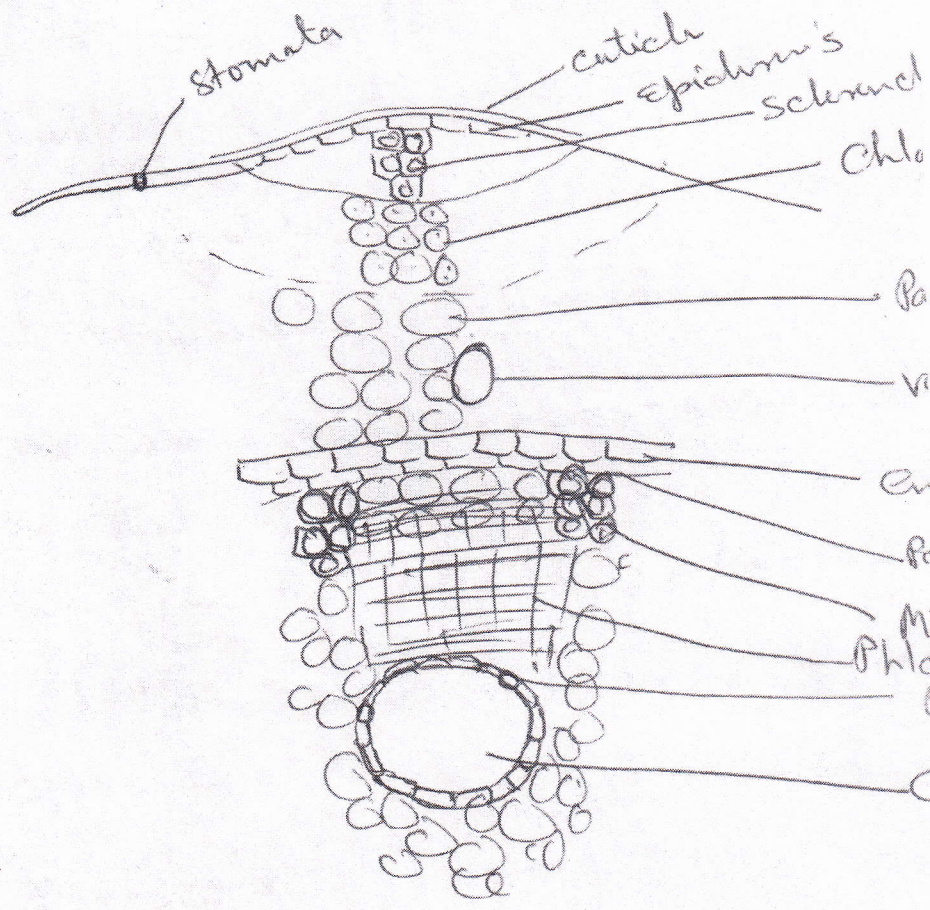 Stomata
cuticle
Epidermis
Sclerench
Chlo
Pa
Va
En
Pe
M
Phlo
C